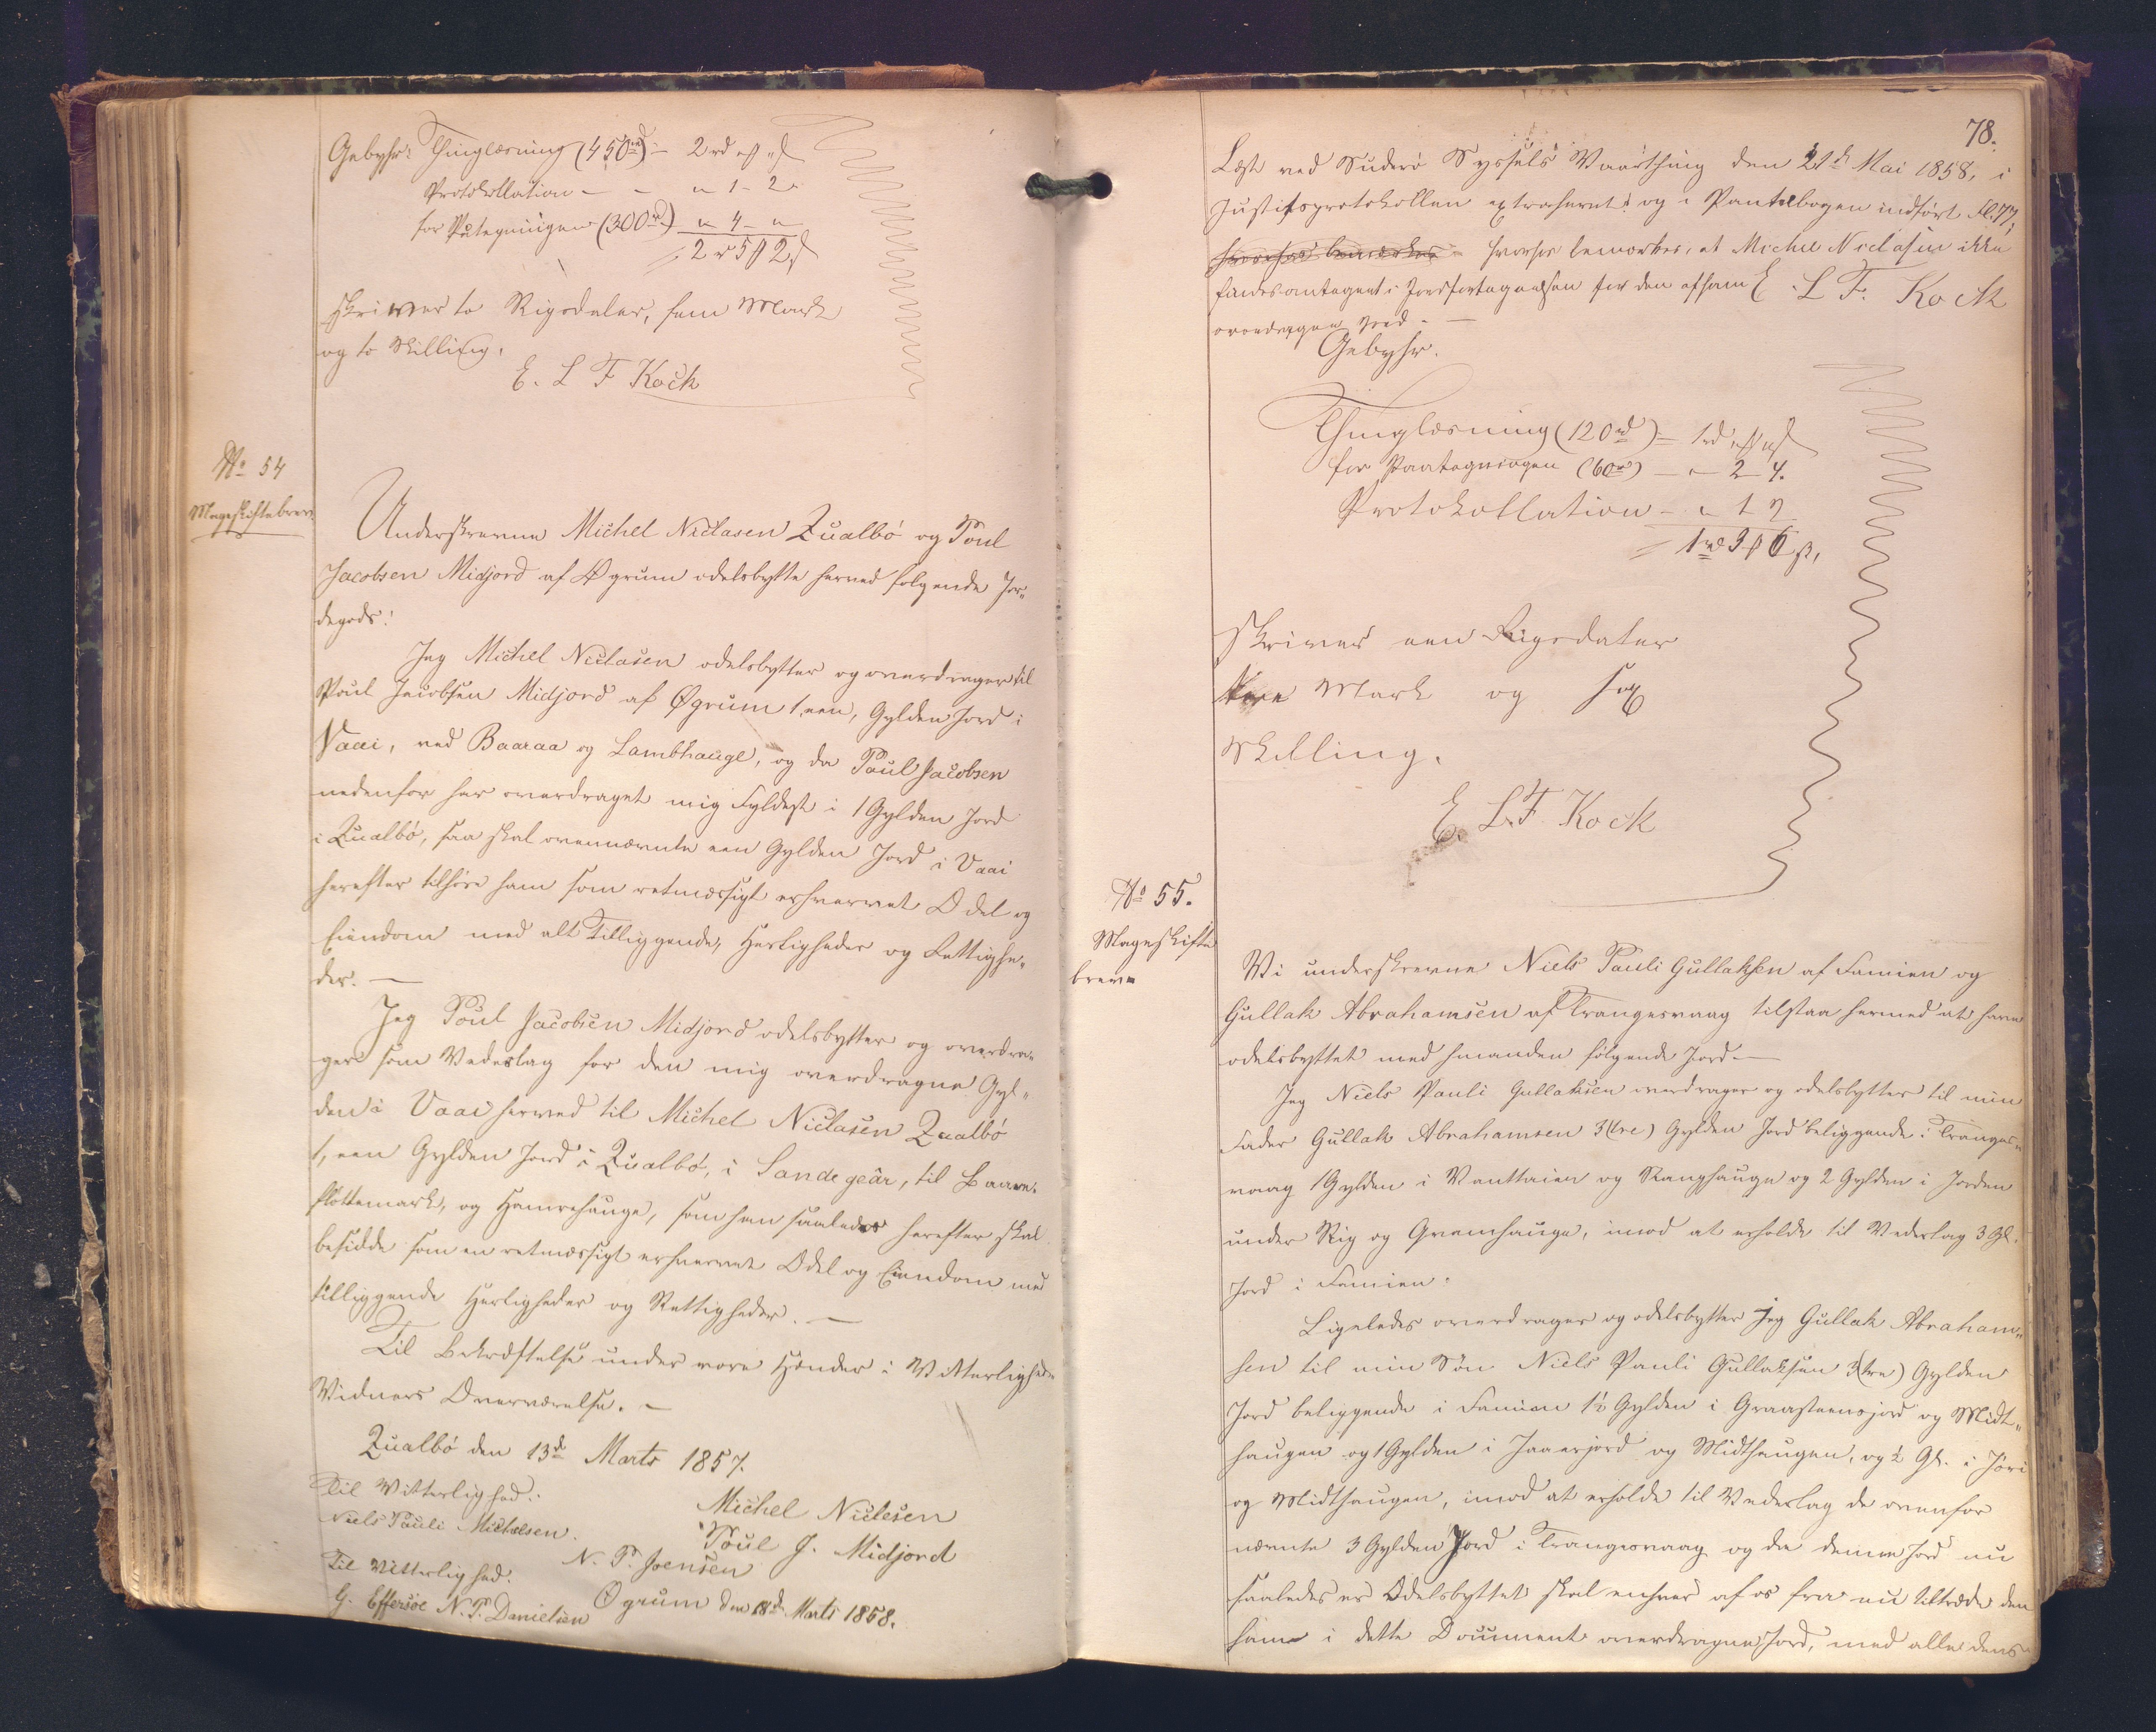 Gebyhr: Thinglæsning (450rd) - 2rd "ß "ß
Protokollation - - " 1 - 2 "
for Påtegningen (300rd) " 4 - "
2rd 5 ß 2 ß
skriver to Rigsdaler, fem Mark
og to Skilling.
E. L F Kock
No 54
Mageskiftebrev
Underskrevne Michel Niclasen Qualbö og Poul
Jacobsen Midjord af Øgrum odelsbytte herved følgende Jor-
degods:
Jeg Michel Niclasen odelsbytter og overdrager til
Poul Jacobsen Midjord af Øgrum 1, een, Gylden Jord i
Vaai, ved Baaraa og Lambhauge, og da Poul Jacobsen
nedenfor har overdraget mig Fyldest i 1 Gylden Jord
i Qualbö, saa skal ovennævnte een Gylden Jord i Vaai
herefter tilhøre ham som retmæssigt erhvervet Odel og
Eiendom med alt Tilliggende, Herligheder og Rettighe-
der. —
Jeg Poul Jacobsen Midjord odelsbytter og overdra-
ger som Vederlag for den mig overdragne Gyl-
den i Vaai herved til Michel Niclasen Qualbö
1, een Gylden Jord i Qualbö, i Sandegeår, til
flottemark, og Hamrehauge, som han saaledes herefter skal
besidde som en retmæssigt erhvervet Odel og Eiendom med
tilliggende Herligheder og Rettigheder. —
Til Bekræftelse under vore Hænder i Vitterligheds
Vidners Overværelse. —
Qualbö den 13de Marts 1857.
Til Vitterlighed:
Michel Niclesen
Niels Pauli Michelsen.
Poul J. Midjord
N. P. Joensen
Til Vitterlighed:
Øgrum den 18de Marts 1858.
G. Effersöe N. P. Danielsen
78.
Læst ved Suderö Syssels Vaarthing den 21de Mai 1858, i
Justitsprotokollen extraheret og i Pantebogen indført Fl. 77,
hvorhos bemærkes hvorhos bemærkes, at Michel Niclasen ikke
findes antagent i Jordfortegnelsen for den af ham
E. L F. Kock
overdragne Jord. —
Gebyhr.
Thinglæsning (120rd) = 1rd "ß "ß
for Paategningen (60rd) - " 2 - 4.
Protokollation - " 1 2
1rd 3 ß 6 ß,
skriver een Rigsdaler
tre Mark og sex
Skilling.
E. L. F. Kock
No 55.
Mageskifte
breve
Vi underskrevne Niels Pauli Gullaksen af Famien og
Gullak Abrahamsen af Trangesvaag tilstaa hermed at have
odelsbyttet med hinanden følgende Jord —
Jeg Niels Pauli Gullaksen overdrager og odelsbytter til min
Fader Gullak Abrahamsen 3 (tre) Gylden Jord beliggende i Tranges-
vaag 1 Gylden i Vanttaien og Ranghauge og 2 Gylden i Jorden
under Rig og Gramhauge, imod at erholde til Vederlag 3 Gl.
Jord i Famien.
Ligeledes overdrager og odelsbytter Jeg Gullak Abraham-
sen til min Søn Niels Pauli Gullaksen 3 (tre) Gylden
Jord beliggende i Famien 1½ Gylden i Graasteensjord og Midt-
haugen og 1 Gylden i Jaaerjord og Midthaugen, og ½ Gl. i Jöri
og Midthaugen, imod at erholde til Vederlag de ovenfor
nævnte 3 Gylden Jord i Trangesvaag og da denne Jord nu
saaledes er Odelsbyttet skal enhver af os fra nu tiltræde den
ham i dette Document overdragne Jord, med alle dens